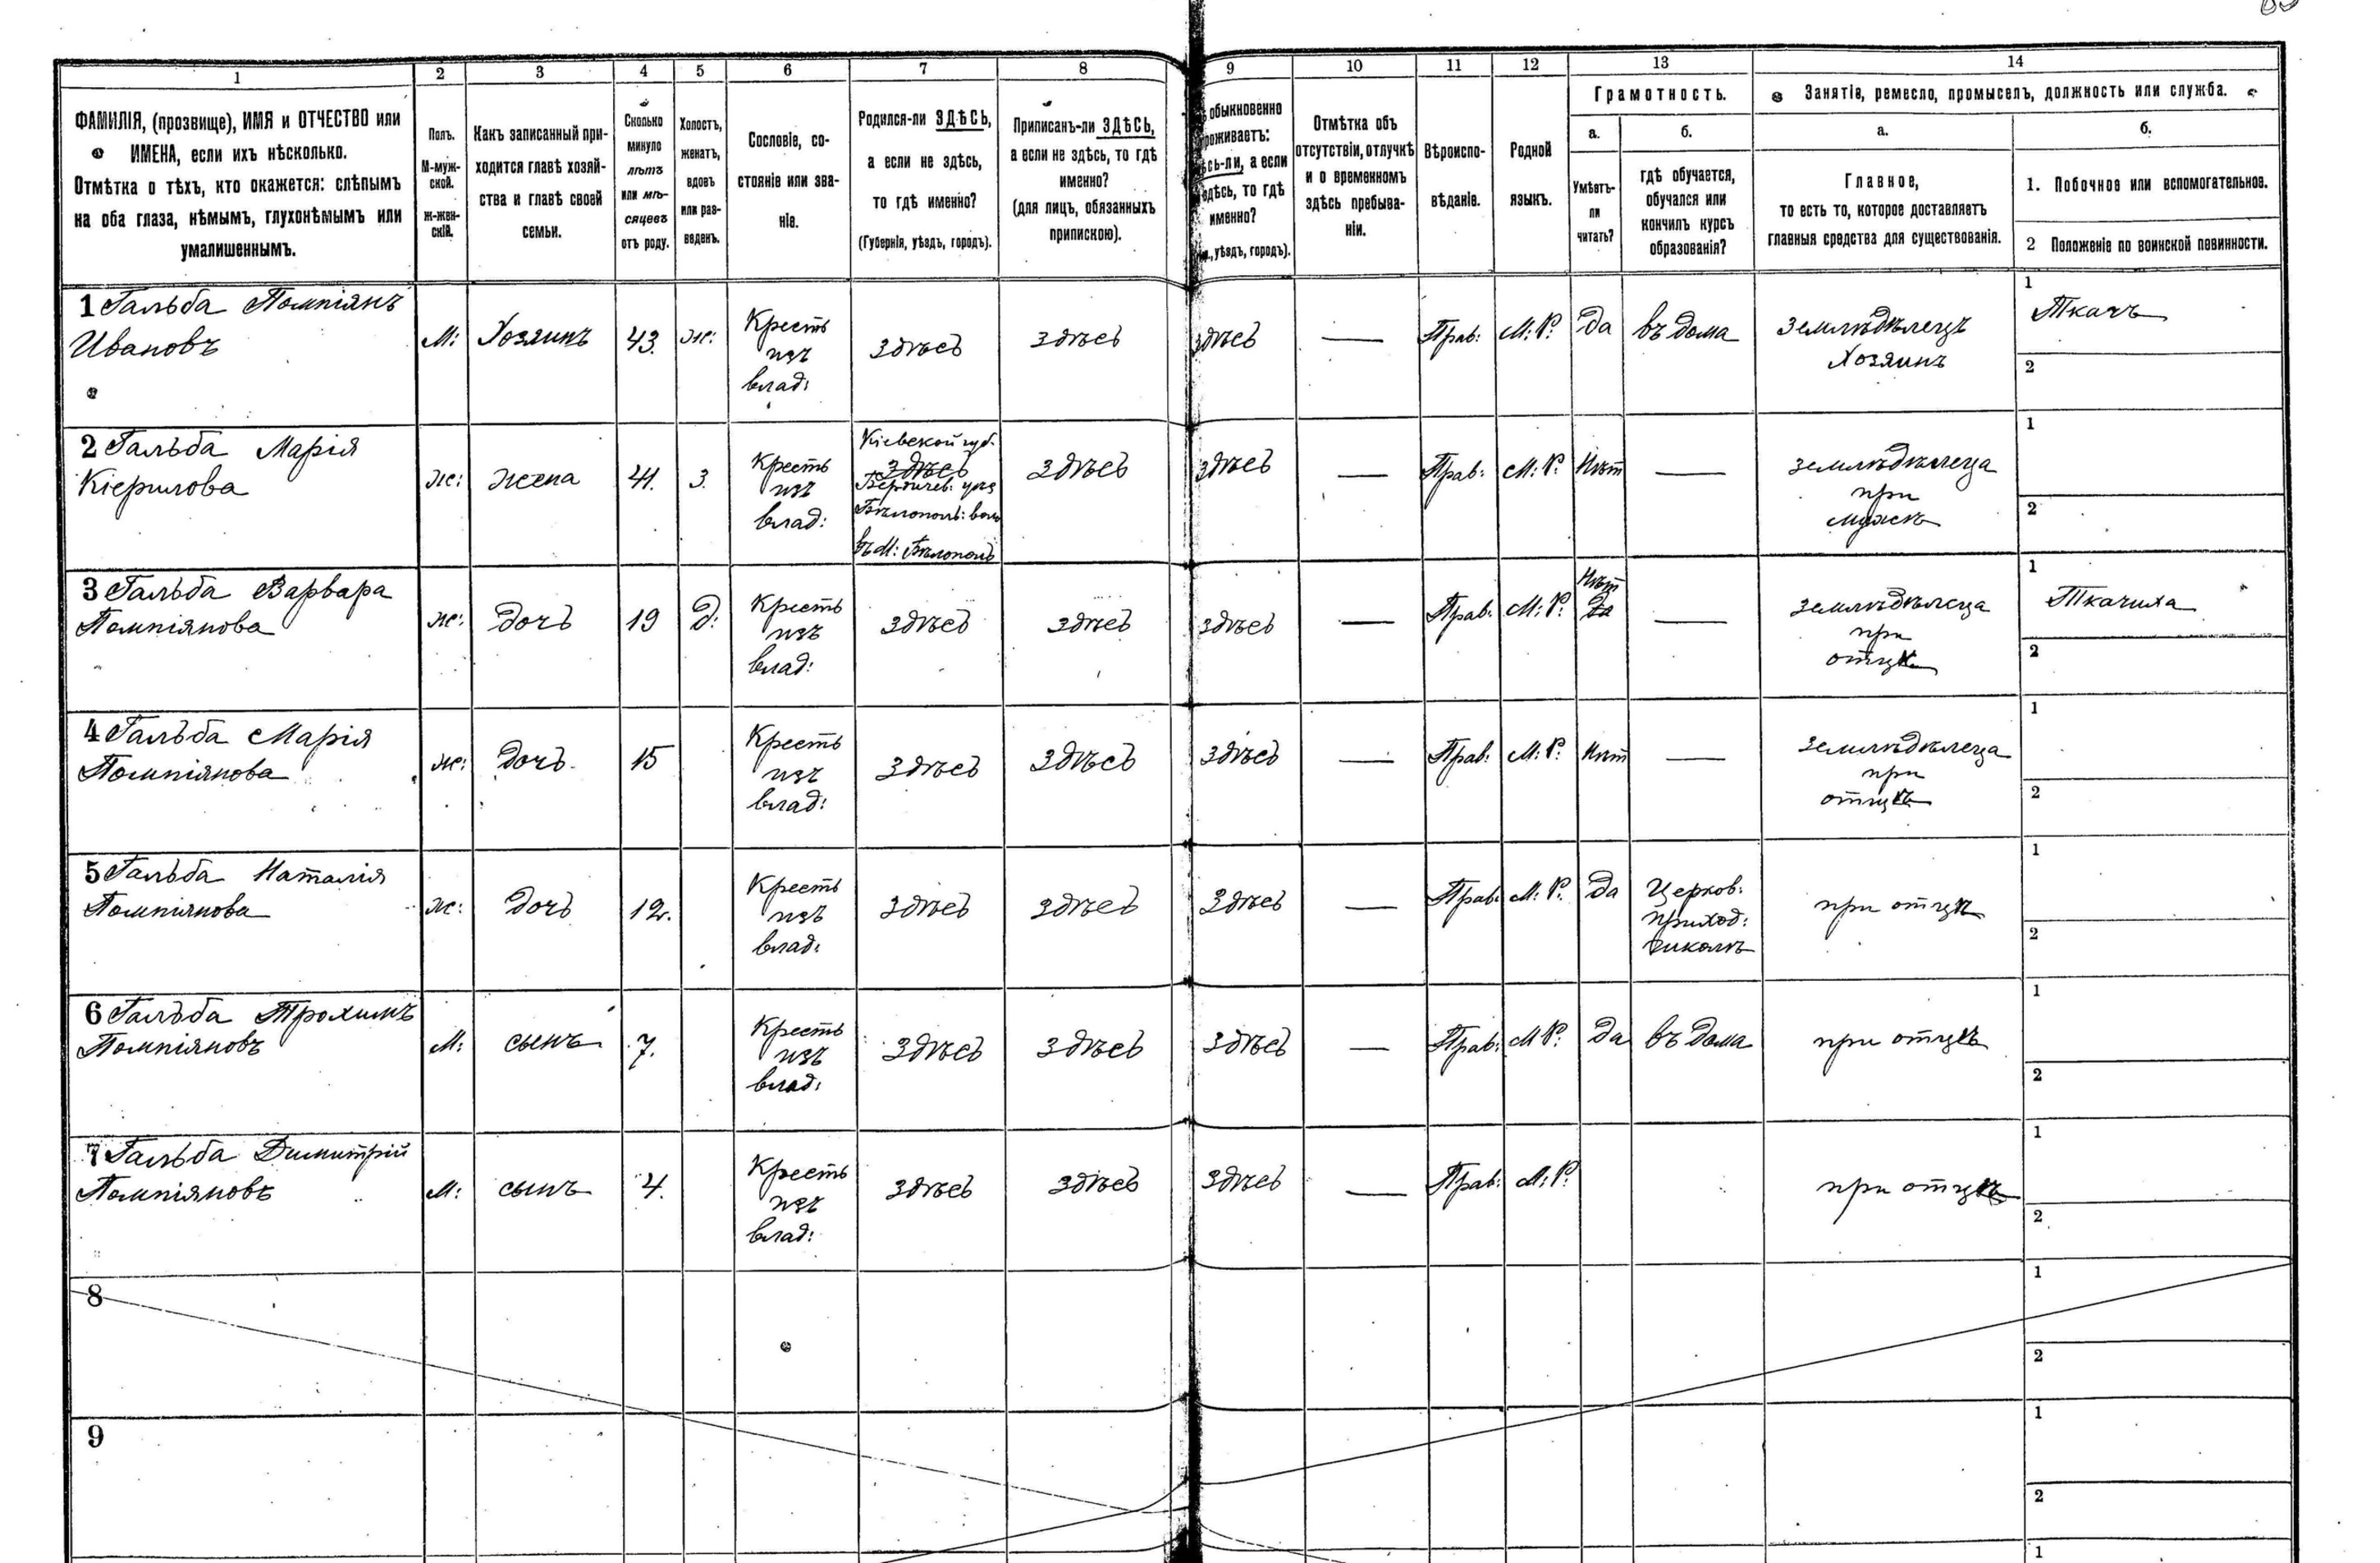 1 2 3 4 5 6 7 8 9 10 11 12 13 14
ФАМИЛІЯ, (прозвище), ИМЯ и ОТЧЕСТВО или
ИМЕНА, если ихъ нѣсколько.
Отмѣтка о тѣхъ, кто окажется: слѣпымъ
на оба глаза, нѣмымъ, глухонѣмымъ или
умалишеннымъ.
Полъ.
М-муж-
ской.
Ж-жен-
скій.
Какъ записанный при-
ходится главѣ хозяй-
ства и главѣ своей
семьи.
Сколько
минуло
лѣтъ
или мѣ-
сяцевъ
отъ роду.
Холостъ,
женатъ,
вдовъ
или раз-
веденъ.
Сословіе, со-
стояніе или зва-
ніе.
Родился-ли ЗДѢСЬ,
а если не здѣсь,
то гдѣ именно?
(Губернія, уѣздъ, городъ).
Приписанъ-ли ЗДѢСЬ,
а если не здѣсь, то гдѣ
именно?
(для лицъ, обязанныхъ
припискою).
обыкновенно
роживаетъ:
сь-ли, а если
здѣсь, то гдѣ
именно?
уѣздъ, городъ).
Отмѣтка объ
отсутствіи, отлучкѣ
и о временномъ
здѣсь пребыва-
ніи.
Вѣроиспо-
вѣданіе.
Родной
языкъ.
Грамотность.
а.
Умѣетъ-
ли
читать?
б.
гдѣ обучается,
обучался или
кончилъ курсъ
образованія?
Занятіе, ремесло, промыселъ, должность или служба.
а.
Главное,
то есть то, которое доставляетъ
главныя средства для существованія.
б.
1. Побочное или вспомогательное.
2 Положеніе по воинской повинности.
1 Гальба Помпіянъ
Ивановъ
М: Хозяинъ 43. ж:
Кресть
изъ
влад:
здѣсь здѣсь здѣсь — Прав: М: Р: Да въ дома
землѣдѣлецъ
Хозяинъ
1
Ткачъ
2
2 Гальба Марія
Кіерилова
ж: жена 41. З.
Кресть
изъ
влад:
Кіевской губ.
здѣсь
Бердичев: уѣз
Бѣлополь: вол
въ М: Бѣлополь
здѣсь здѣсь — Прав: М: Р: Нѣт —
землѣдѣлеца
при
мужѣ
1
2
3 Гальба Варвара
Помпіянова
ж: Дочь 19 Д:
Кресть
изъ
влад:
здѣсь здѣсь здѣсь — Прав: М: Р:
Нѣт
Да
—
землѣдѣлеца
при
отцѣ
1
Ткачиха
2
4 Гальба Марія
Помпіянова
ж: Дочь 15
Кресть
изъ
влад:
здѣсь здѣсь здѣсь — Прав: М: Р: Нѣт —
землѣдѣлеца
при
отцѣ
1
2
5 Гальба Наталія
Помпіянова
ж: Дочь 12.
Кресть
изъ
влад:
здѣсь здѣсь здѣсь — Прав: М: Р: Да
Церков:
приход:
школѣ
при отцѣ
1
2
6 Гальба Трохимъ
Помпіяновъ
М: сынъ 7.
Кресть
изъ
влад:
здѣсь здѣсь здѣсь — Прав: М Р: Да въ дома
при отцѣ
1
2
7 Гальба Димитрій
Помпіяновъ
М: сынъ 4.
Кресть
изъ
влад:
здѣсь здѣсь здѣсь — Прав: М: Р:
при отцѣ
1
2
8
1
2
9
1
2
1